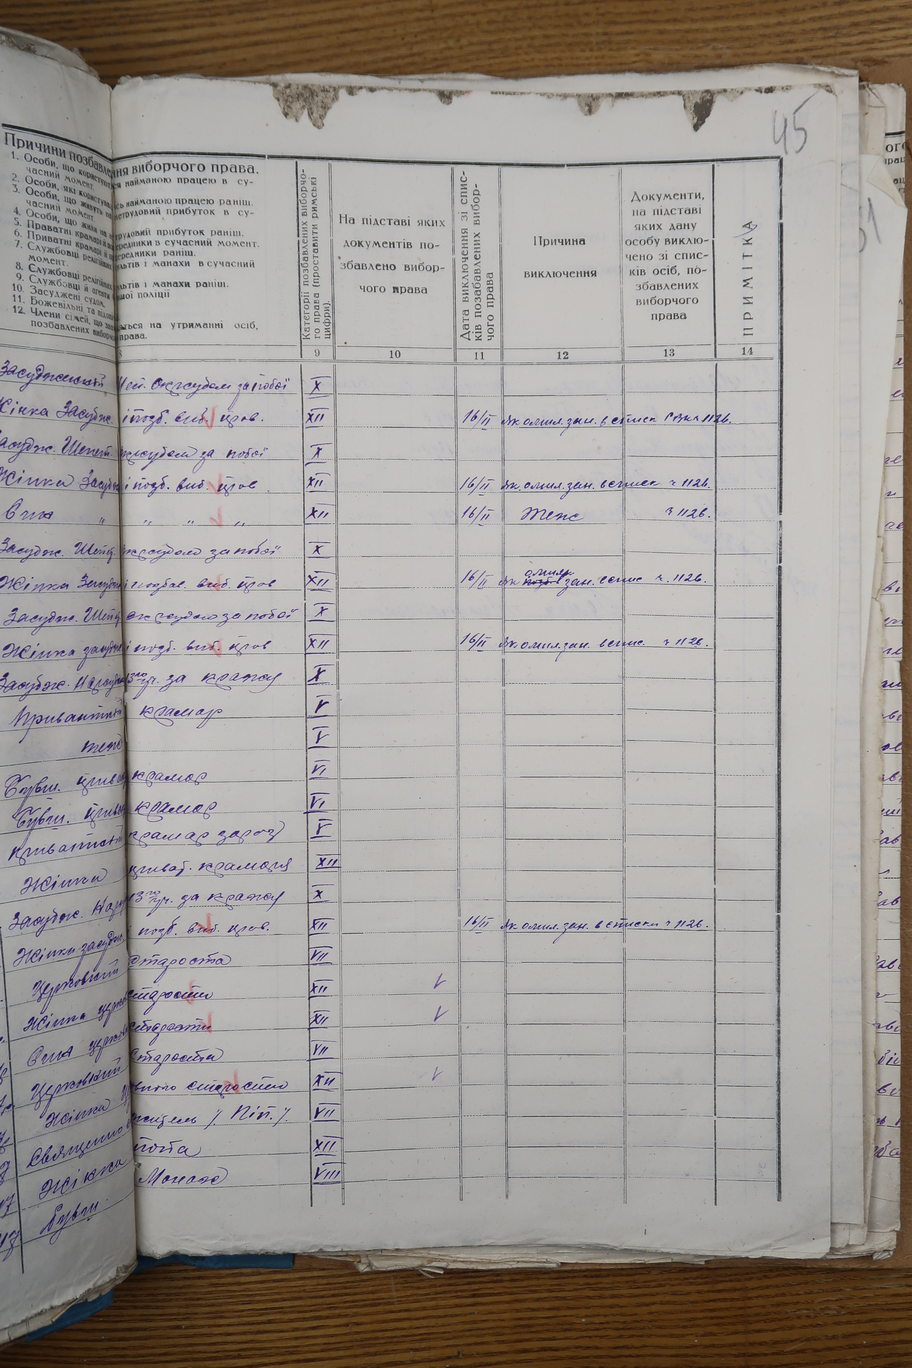 45
Причини позбавлення виборчого права.
1. Особи, що користуються найманою працею в су-
часний момент.
2. Особи, які користувались найманою працею раніш.
3. Особи, що живуть на нетрудовий прибуток в су-
часний момент.
4. Особи, що жили на нетрудовий прибуток раніш.
5. Праватні крамарі й посередники в сучасний момент.
6. Приватні крамарі й посередники раніш.
7. Службовці релігійних культів і манахи в сучасний
момент.
8. Службовці релігійних культів і манахи раніш.
9. Службовці й агенти колишньої поліції
10. Засуджені судом.
11. Божевільні та під
12. Члени сімей, що знаходяться на утриманні осіб,
позбавлених виборчого права.
Категорії позбавлених виборчо-
го права (проставити римські
цифри).
На підставі яких
документів по-
збавлено вибор-
чого права
Дата виключення зі спис-
ків позабавлених вибор-
чого права
Причина
виключення
Документи,
на підставі
яких дану
особу виклю-
чено зі спис-
ків осіб, по-
збавлених
виборчого
права
ПРИМІТКА
8 9 10 11 12 13 14
Засуджений Шеп. Окрсудом за побої X
Жінка Засудж. і позб. виб. прав. XII 16/II Як омил. зан. в списк 1126.
Засудж. Шепет. окрсудом за побої X
Жінка Засудж і позб. виб. прав XII 16/II Як омил. зан. в списк ч 1126.
Син „ „ „ „ XII 16/II Теж ч 1126.
Засудж. Шепт. окрсудом за побої X
Жінка Засудж і позбав. виб. прав XII 16/II Як омилк. зан. в спис ч. 1126.
Засудж. Шепт. окрсудом за побої X
Жінка засудж і позб. виб. прав XII 16/II Як омил. зан. в спис. ч 1126.
Засудж. Нарсудом 3ᵒᵍᵒ уч. за кражу X
Приватний крамар V
теж V
Бувш. прив крамар VI
Бувш. прив крамар VI
приватний крамар зараз V
Жінка приват. крамаря XII
Засудж. Нар 3ᵒᵍᵒ уч. за кражу X
Жінка засудж. позб. виб. прав. XII 16/II Як омил. зан. в списки ч 1126.
Церковний староста VII
Жінка церк старости XII V
Сина церков старости XII V
Церковний староста VII
Жінка церковного старости XII V
Священно житель /. Піп. /. VII
Жінка попа XII
Бувш. Монах VIII